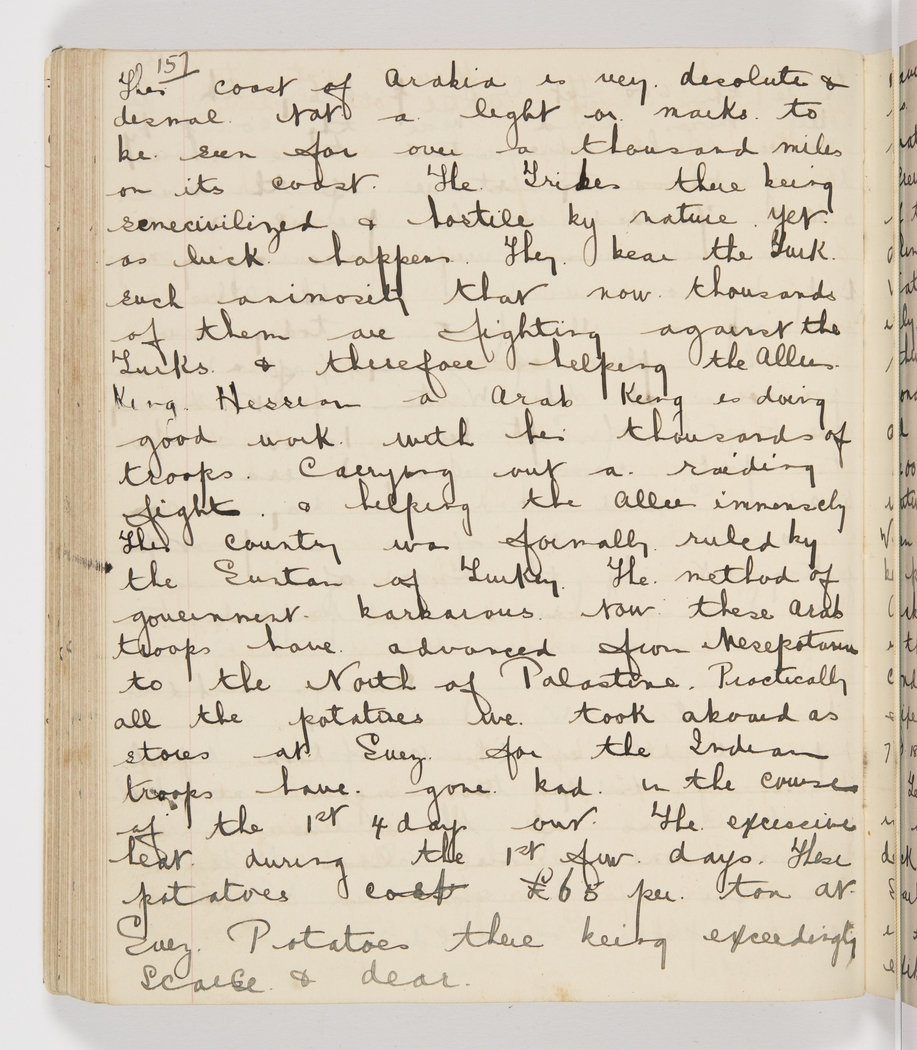 157
This coast of Arabia is very desolute &
dismal. Not a light or marks to
be seen for over a thousand miles
on its coast. The Tribes there being
semecivilized & hostile by nature yet
as luck happens. They bear the Turk
such animosity that now thousands
of them are fighting against the
Turks. & therefore helping the Allies.
King. Hessian a Arab King is doing
good work with his thousands of
troops. Carrying out a raiding
fight. & helping the Allies immensely
This country was formally ruled by
the Sultan of Turkey. The method of
government barbarous. Now these Arab
troops have advanced from Mesepotamia
to the North of Palastine. Practically
all the potatoes we took aboard as
stores at Suez. for the Indian
troops have gone bad in the course
of the 1st 4 day out. The excessive
heat during the 1st few days. These
potatoes cost £65 per ton at
Suez. Potatoes there being exceedingly
scarce & dear.